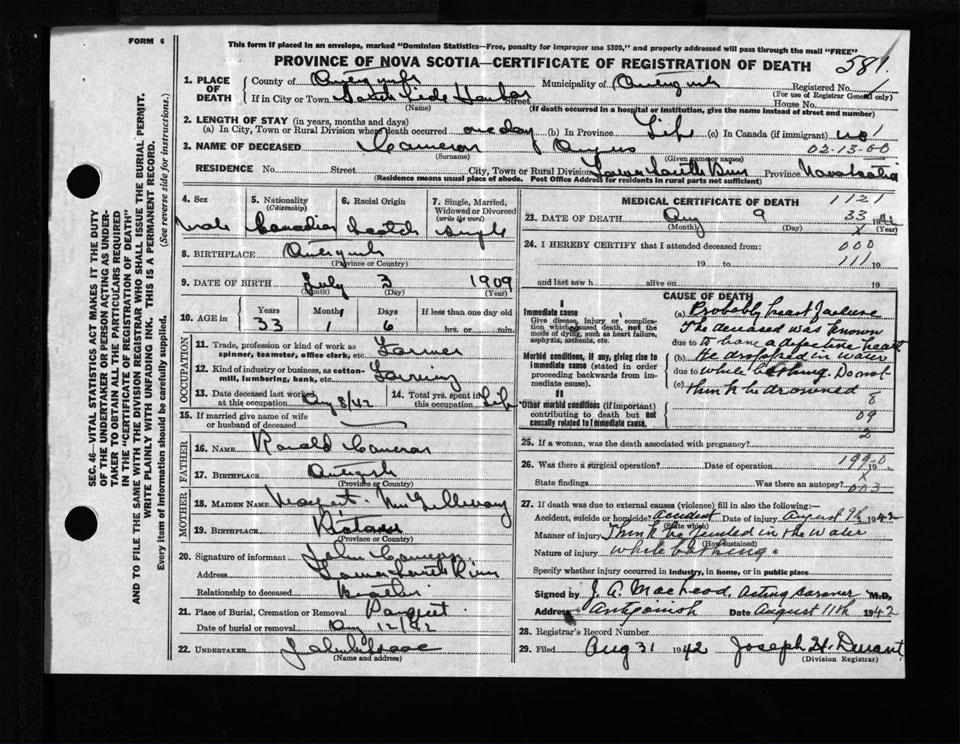 FORM 6
This form if placed in an envelope, marked "Dominion Statistics—Free, penalty for improper use $300," and properly addressed will pass through the mail "FREE"
PROVINCE OF NOVA SCOTIA—CERTIFICATE OF REGISTRATION OF DEATH
581.
1. PLACE OF DEATH
County of
Municipality of
Registered No.
(For use of Registrar General only)
If in City or Town South Side Harbor Street House No.
(If death occurred in a hospital or institution, give the name instead of street and number)
2. LENGTH OF STAY (in years, months and days)
(a) In City, Town or Rural Division where death occurred one day (b) In Province Life (c) In Canada (if immigrant) no
3. NAME OF DECEASED Cameron Angus 02-13-00
(Surname) (Given name or names)
RESIDENCE No. Street City, Town or Rural Division Lower South River Province Nova Scotia
(Residence means usual place of abode. Post Office Address for residents in rural parts not sufficient)
4. Sex Male
5. Nationality (Citizenship) Canadian
6. Racial Origin Scotch
7. Single, Married, Widowed or Divorced (write the word) Single
8. BIRTHPLACE
(Province or Country)
9. DATE OF BIRTH July 3 1909
(Month) (Day) (Year)
10. AGE in Years Months Days If less than one day old
33 1 6 hrs. or min.
OCCUPATION
11. Trade, profession or kind of work as spinner, teamster, office clerk, etc. Farmer
12. Kind of industry or business, as cotton-mill, lumbering, bank, etc. Farming
13. Date deceased last worked at this occupation Aug 8/42
14. Total yrs. spent in this occupation Life
15. If married give name of wife or husband of deceased
FATHER
16. NAME Ronald Cameron
17. BIRTHPLACE
(Province or Country)
MOTHER
18. MAIDEN NAME Margaret McGillivray
19. BIRTHPLACE
(Province or Country)
20. Signature of informant John Cameron
Address Lower South River
Relationship to deceased Brother
21. Place of Burial, Cremation or Removal Pomquet
Date of burial or removal Aug 12/42
22. UNDERTAKER
(Name and address)
MEDICAL CERTIFICATE OF DEATH
1121
23. DATE OF DEATH Aug 9 33
(Month) (Day) (Year)
24. I HEREBY CERTIFY that I attended deceased from: 000
19 to 111 19
and last saw h alive on 19
CAUSE OF DEATH
I
Immediate cause
Give disease, injury or complication which caused death, not the mode of dying, such as heart failure, asphyxia, asthenia, etc.
Morbid conditions, if any, giving rise to immediate cause (stated in order proceeding backwards from immediate cause).
II
Other morbid conditions (if important) contributing to death but not causally related to immediate cause.
(a) Probably heart failure
The deceased was known
due to to have a defective heart
(b) He dropped in water
due to while bathing. Do not
(c) think he drowned
8
09
2
25. If a woman, was the death associated with pregnancy?
26. Was there a surgical operation? Date of operation 19
State findings Was there an autopsy?
003
27. If death was due to external causes (violence) fill in also the following:
Accident, suicide or homicide? accident Date of injury August 9th, 1942
(State which)
Manner of injury Think he fainted in the water
(How sustained)
Nature of injury while bathing.
Specify whether injury occurred in industry, in home, or in public place
Signed by J. A. MacLeod, Acting Coroner M.D.
Address Antigonish Date August 11th 1942
28. Registrar's Record Number
29. Filed Aug 31 1942 Joseph H. Durant
(Division Registrar)
SEC. 46—VITAL STATISTICS ACT MAKES IT THE DUTY
OF THE UNDERTAKER OR PERSON ACTING AS UNDER-
TAKER TO OBTAIN ALL THE PARTICULARS REQUIRED
IN THE "CERTIFICATE OF REGISTRATION OF DEATH"
AND TO FILE THE SAME WITH THE DIVISION REGISTRAR WHO SHALL ISSUE THE BURIAL PERMIT.
WRITE PLAINLY WITH UNFADING INK. THIS IS A PERMANENT RECORD.
Every item of information should be carefully supplied. (See reverse side for instructions.)